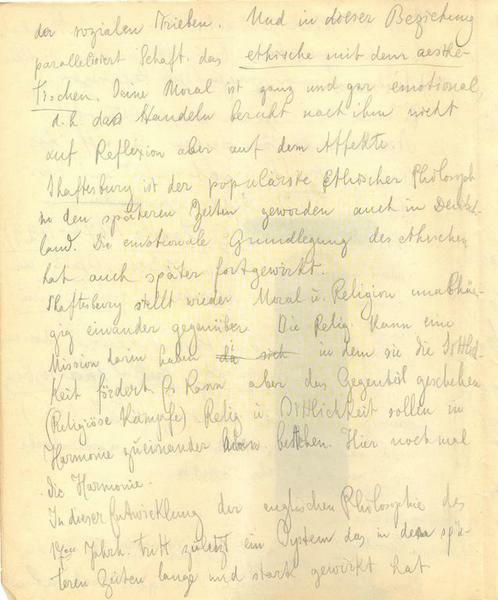 der sozialen Trieben. Und in dieser Beziehung
parallelisiert Schaft. das ethische mit dem aesthe-
tischen. Seine Moral ist ganz und gar emotional,
d.h. das Handeln beruht nach ihm nicht
auf Reflexion aber auf dem Affekte.
Shaftesbury ist der populärste Ethischer Philosoph
in den späteren Zeiten geworden auch in Deutsch-
land. Die emotionale Grundlegung des ethischen
hat auch später fortgewirkt.
Shaftesbury stellt wieder Moral u. Religion unabhän-
gig einander gegenüber. Die Relig. kann eine
Mission darin haben in dem sie die Sittlich-
keit fördert. Es kann aber das Gegenteil geschehen
(Religiöse Kämpfe). Relig u. Sittlichkeit sollen in
Harmonie zueinander bestehen. Hier noch mal
die Harmonie.
In dieser Entwicklung der englischen Philosophie des
Jahrh. tritt zuletzt ein System das in den spä-
teren Zeiten lange und stark gewirkt hat